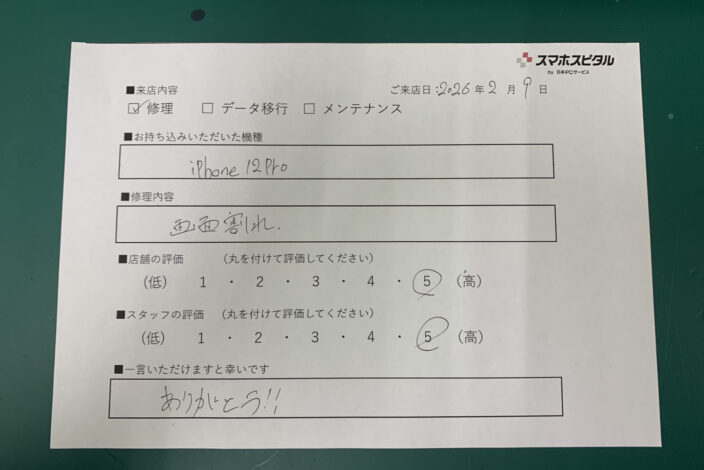 スマホスピタル
by 日本PCサービス
■来店内容
ご来店日:2026年2月9日
☑修理 □ データ移行 □ メンテナンス
■お持ち込みいただいた機種
iPhone 12Pro
■修理内容
画面割れ.
■店舗の評価 (丸を付けて評価してください)
(低) 1 ・ 2 ・ 3 ・ 4 ・ 5 (高)
■スタッフの評価 (丸を付けて評価してください)
(低) 1 ・ 2 ・ 3 ・ 4 ・ 5 (高)
■一言いただけますと幸いです
ありがとう!!